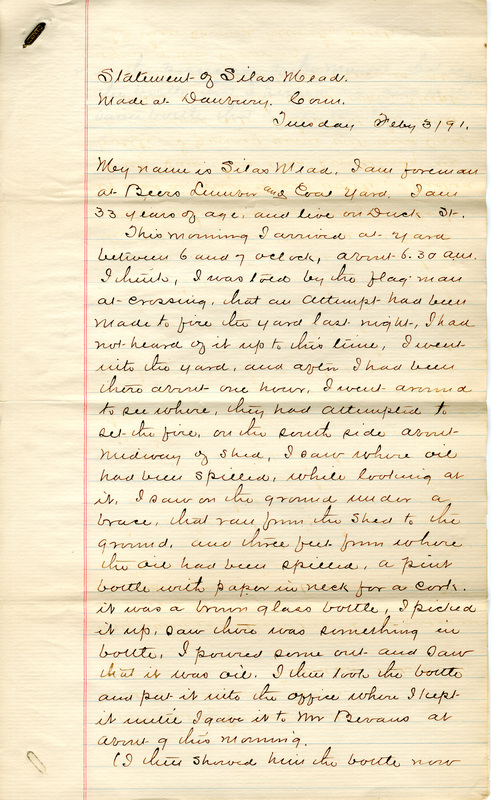 Statement of Silas Mead.
Made at Danbury. Conn.
Tuesday Feby 3/91.
My name is Silas Mead, I am foreman
at Beers Lumber and Coal Yard. I am
33 years of age, and live on Duck St.
This morning I arrived at yard
between 6 and 7 oclock, about 6.30 am.
I think, I was told by the flag man
at crossing, that an attempt had been
made to fire the yard last night, I had
not heard of it up to this time, I went
into the yard, and after I had been
there about one hour, I went around
to see where, they had attempted to
set the fire, on the south side about
midway of shed, I saw where oil
had been spilled, while looking at
it, I saw on the ground under a
brace, that ran from the shed to the
ground, and three feet from where
the oil had been spilled, a pint
bottle with paper in neck for a cork.
it was a brown glass bottle, I picked
it up, saw there was something in
bottle, I poured some out and saw
that it was oil. I then took the bottle
and put it into the office where I kept
it until I gave it to Mr Bevans at
about 9 this morning.
(I then showed him the bottle now